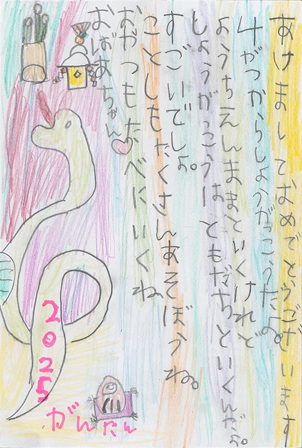 あけましておめでとうございます
4がつからしょうがっこうだよ。
ようちえんままといくけれど
しょうがっこうは ともだちといくんだよ。
すごいでしょ。
ことしもたくさんあそぼうね。
おやつもたべにいくね
おばあちゃん♡
2025
がんたん